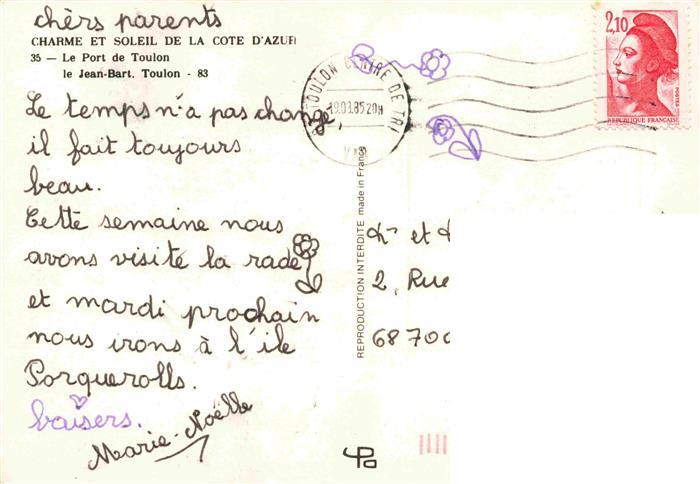 chèrs parents
CHARME ET SOLEIL DE LA COTE D'AZUR
35 — Le Port de Toulon
le Jean-Bart. Toulon - 83
Le temps n'a pas change,
il fait toujours
beau.
Cette semaine nous
avons visité la rade
et mardi prochain
nous irons à l'ile
Porquerolls.
baisers.
Marie-Noëlle
TOULON CENTRE DE TRI
19.03.85 20H
VAR
2,10
POSTES
REPUBLIQUE FRANCAISE
REPRODUCTION INTERDITE made in France
et
2, Rue
68700